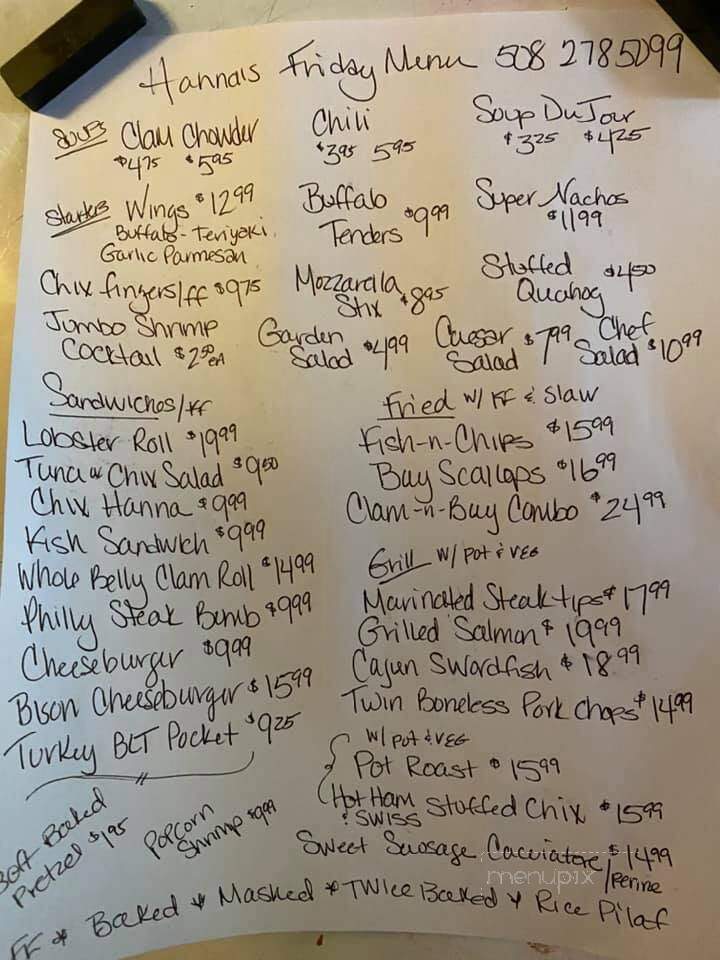 Hanna's Friday Menu 508 2785099
Soups Clam Chowder Chili Soup Du Jour
$4.75 $5.95 $3.95 5.95 $3.25 $4.25
Starters Wings $12.99 Buffalo Super Nachos
Buffalo - Teriyaki Tenders $9.99 $11.99
Garlic Parmesan
Chix fingers/ff $9.75 Mozzarella Stuffed $4.50
Stix $8.95 Quahog
Jumbo Shrimp Garden Caesar Chef
Cocktail $2.50 ea Salad $4.99 Salad $7.99 Salad $10.99
Sandwiches/FF
Lobster Roll $19.99
Tuna or Chix Salad $9.50
Chix Hanna $9.99
Fish Sandwich $9.99
Whole Belly Clam Roll $14.99
Philly Steak Bomb $9.99
Cheeseburger $9.99
Bison Cheeseburger $15.99
Turkey BLT Pocket $9.25
Fried w/ FF & Slaw
Fish-n-Chips $15.99
Bay Scallops $16.99
Clam-n-Bay Combo $24.99
Grill w/ Pot & VEG
Marinated Steak tips $17.99
Grilled Salmon $19.99
Cajun Swordfish $18.99
Twin Boneless Pork Chops $14.99
w/ Pot & VEG
Pot Roast $15.99
Hot Ham & SWISS Stuffed Chix $15.99
Sweet Sausage Cacciatore/penne $14.99
Soft Baked
Pretzel $1.95
Popcorn
Shrimp $9.99
FF * Baked * Mashed * Twice Baked * Rice Pilaf
menupix